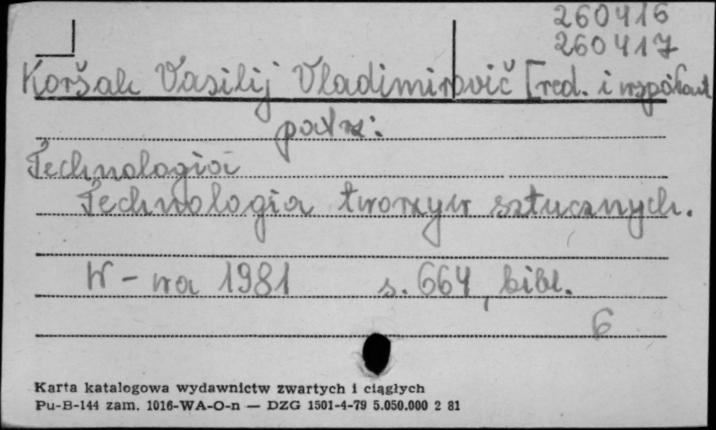 260416
260417
Koršak Vasilij Vladimirovič [red. i współaut
patrz:
Technologia
Technologia tworzyw sztucznych.
W-wa 1981 s. 664, bibl.
6
Karta katalogowa wydawnictw zwartych i ciągłych
Pu-B-144 zam. 1016-WA-O-n — DZG 1501-4-79 5.050.000 2 81